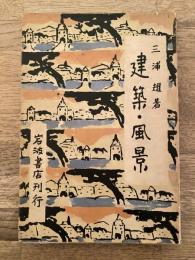 三浦 耀著
建築・風景
岩波書店刊行